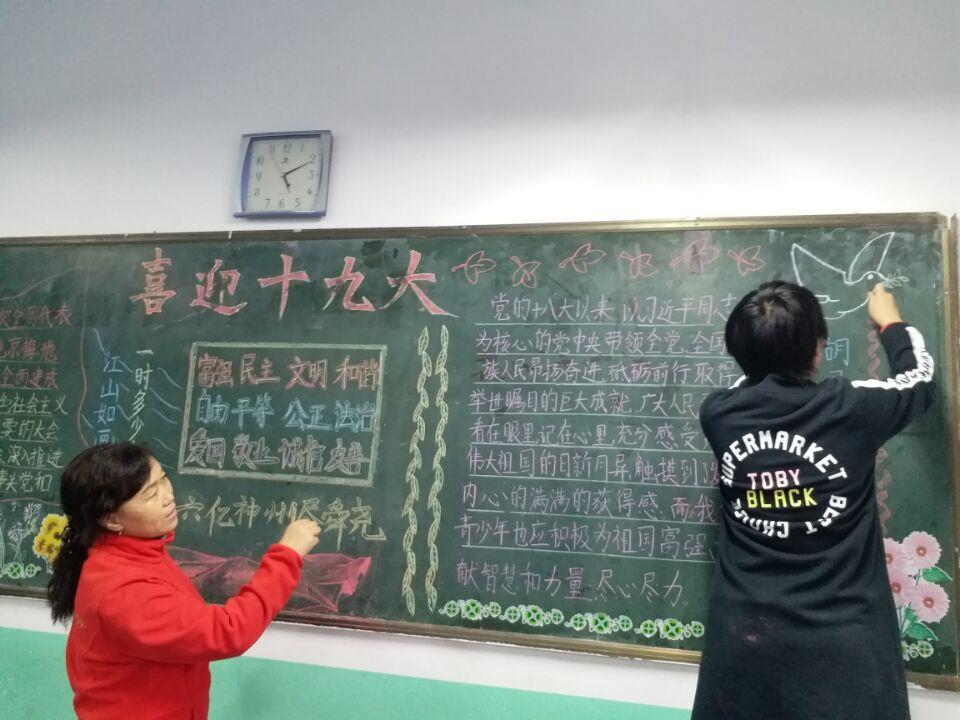 喜迎十九大
全国代表
北京 地
全面建成
社会主义
要的大会
深入推进
党和
江山如画
一时多少
富强 民主 文明 和谐
自由 平等 公正 法治
爱国 敬业 诚信 友善
六亿神州尽舜尧
党的十八大以来 以习近平同志
为核心的党中央带领全党、全国
族人民昂扬奋进 砥砺前行 取得
举世瞩目的巨大成就 广大人民
看在眼里记在心里,充分感受
伟大祖国的日新月异 触摸到
内心的满满的获得感 而我
青少年也应积极为祖国富强
献智慧和力量,尽心尽力
明
SUPERMARKET
TOBY
BLACK
BEST CHOICE
10 11 12 1
9 2
8 3
7 6 5 4